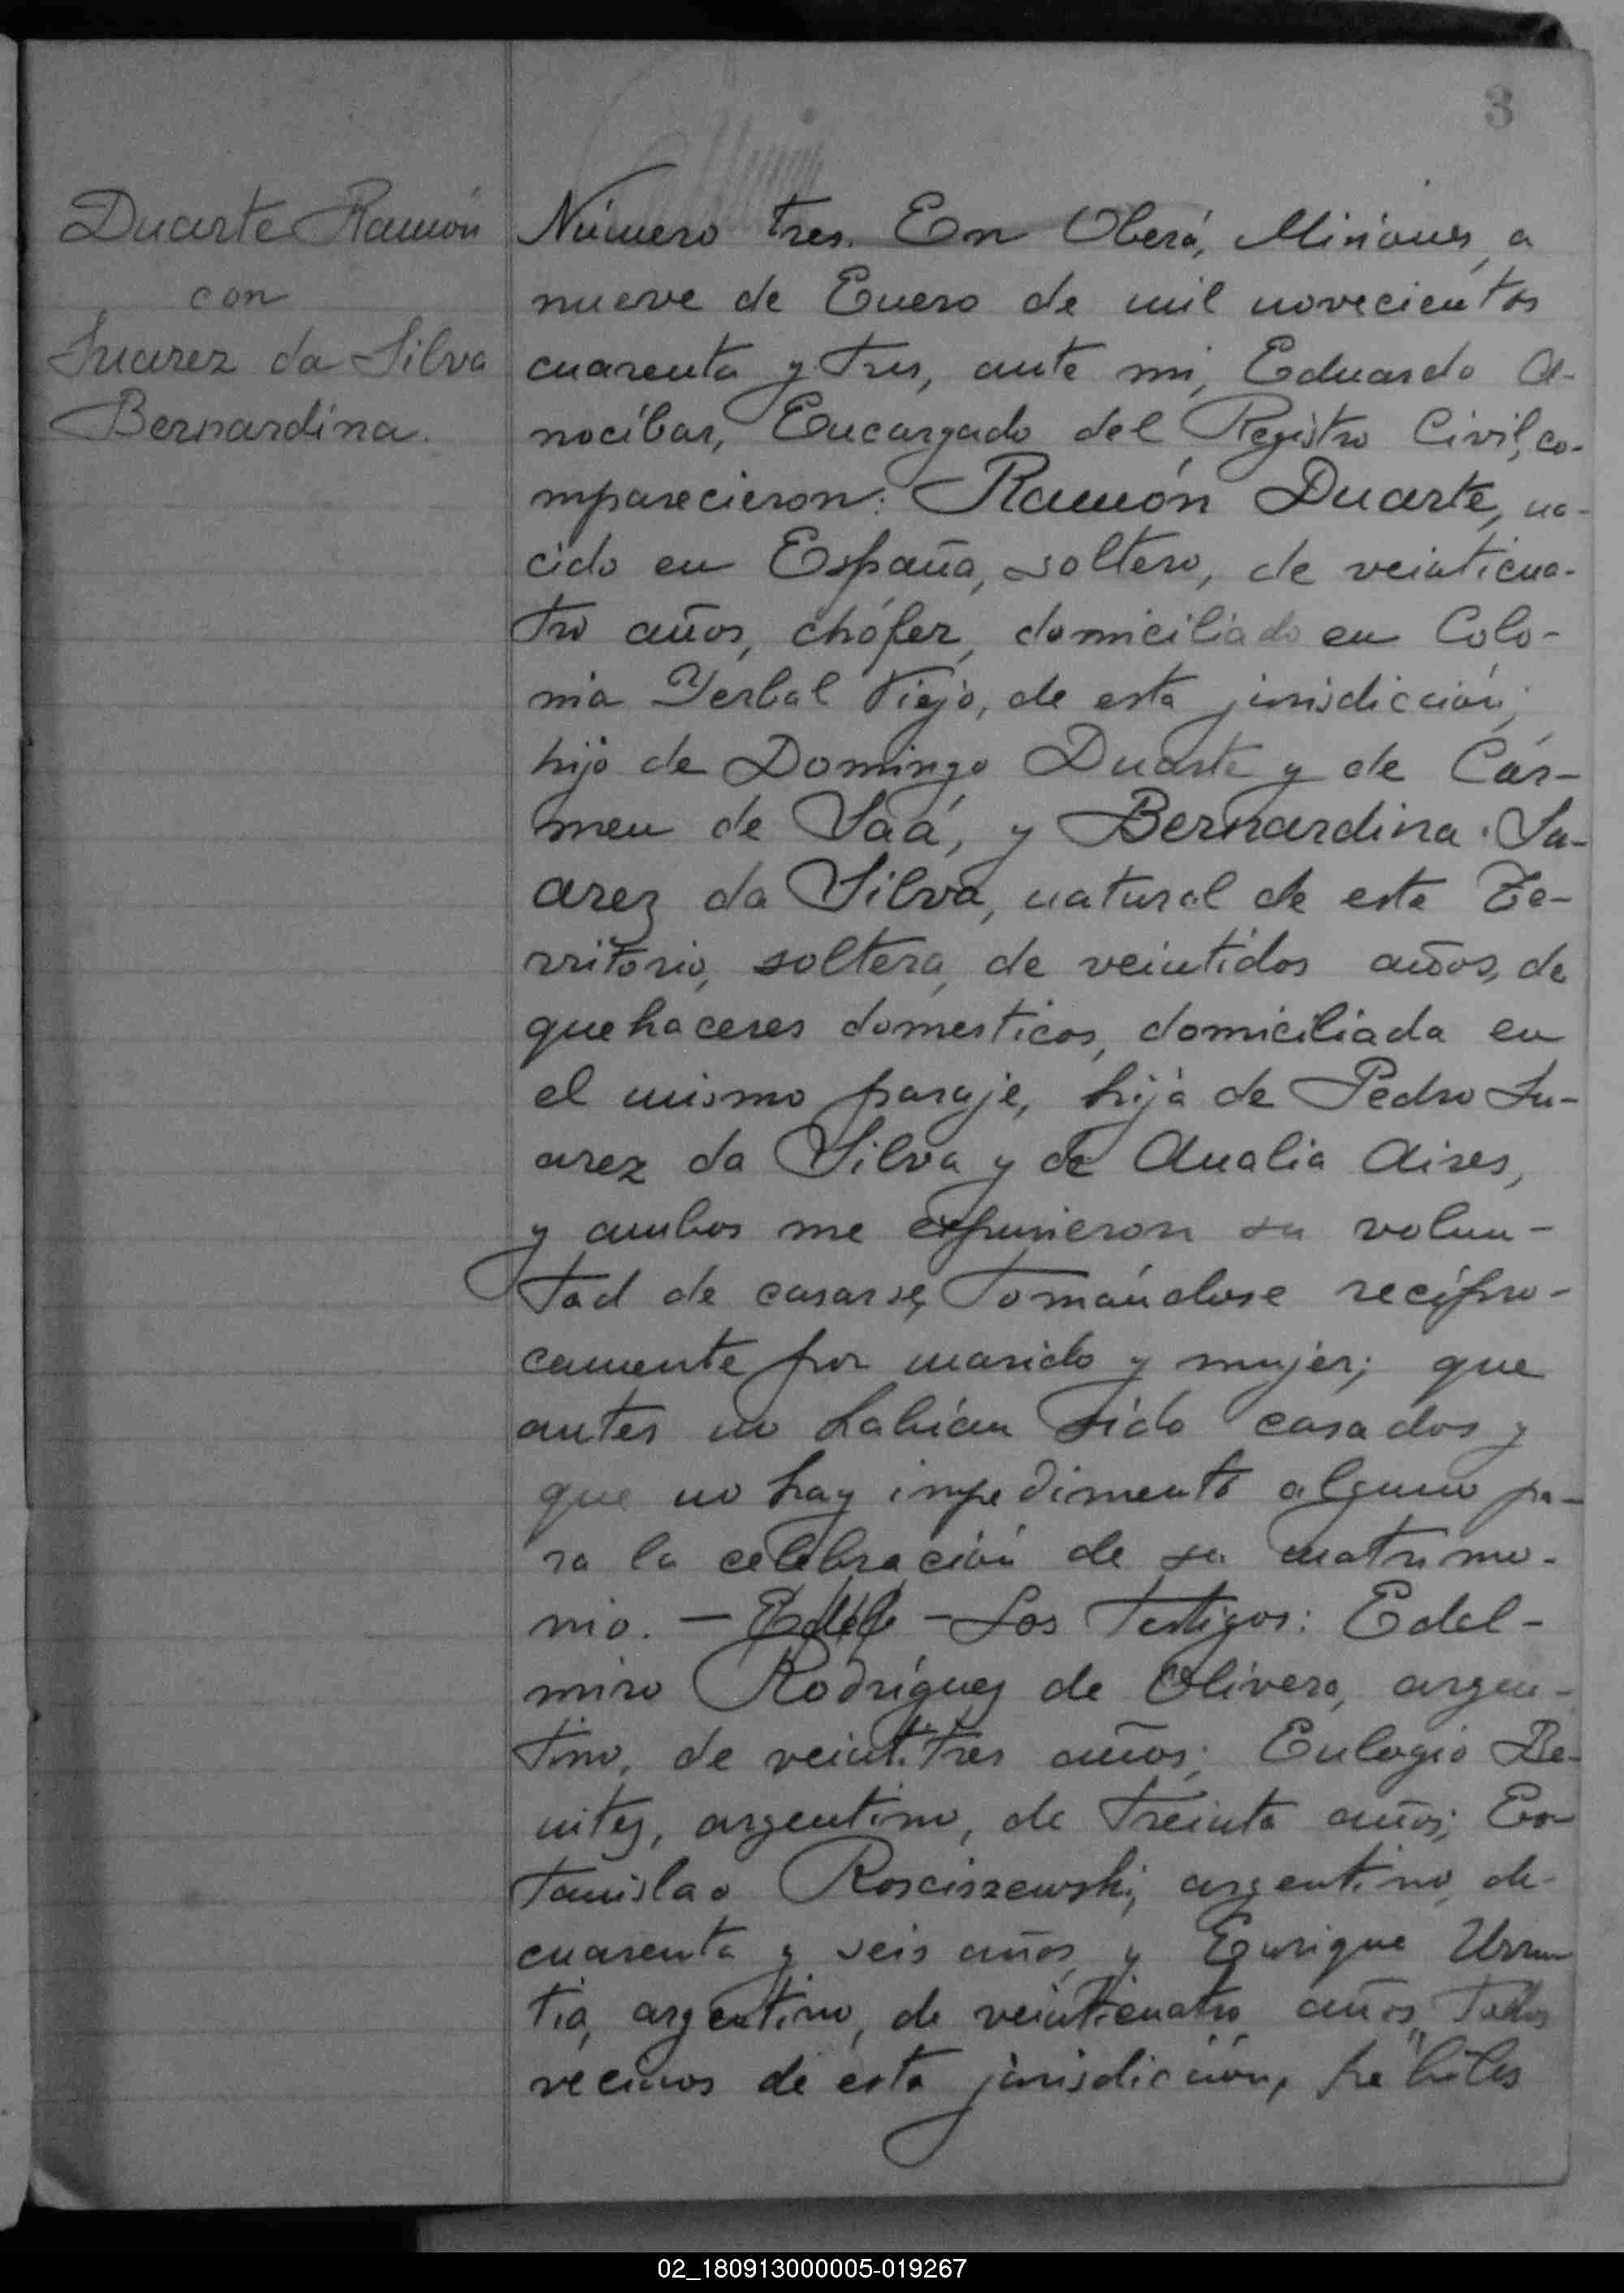 3
Duarte Ramón
con
Suarez da Silva
Bernardina.
Número tres. En Oberá, Misiones, a
nueve de Enero de mil novecientos
cuarenta y tres, ante mi, Eduardo A-
nocíbar, Encargado del Registro Civil, co-
mparecieron: Ramón Duarte, na-
cido en España, soltero, de veinticua-
tro años, chófer, domiciliado en Colo-
nia Yerbal Viejo, de esta jurisdicción;
hijo de Domingo Duarte y de Cár-
men de Saá, y Bernardina Su-
arez da Silva, natural de este Te-
rritorio, soltera, de veintidos años, de
quehaceres domesticos, domiciliada en
el mismo paraje, hija de Pedro Su-
arez da Silva y de Analia Aires,
y ambos me expusieron su volun-
tad de casarse, tomándose recípro-
camente por marido y mujer; que
antes no habían sido casados y
que no hay impedimento alguno pa-
ra la celebración de su matrimo-
nio. — — Los testigos: Edel-
miro Rodríguez de Olivera, argen-
tino, de veintitres años; Eulogio Be-
nitez, argentino, de treinta años; Es-
tanislao Rosciszewski, argentino, de
cuarenta y seis años y Enrique Urru
tia, argentino, de veinticuatro años, todos
vecinos de esta jurisdicción, hábiles
02_180913000005-019267